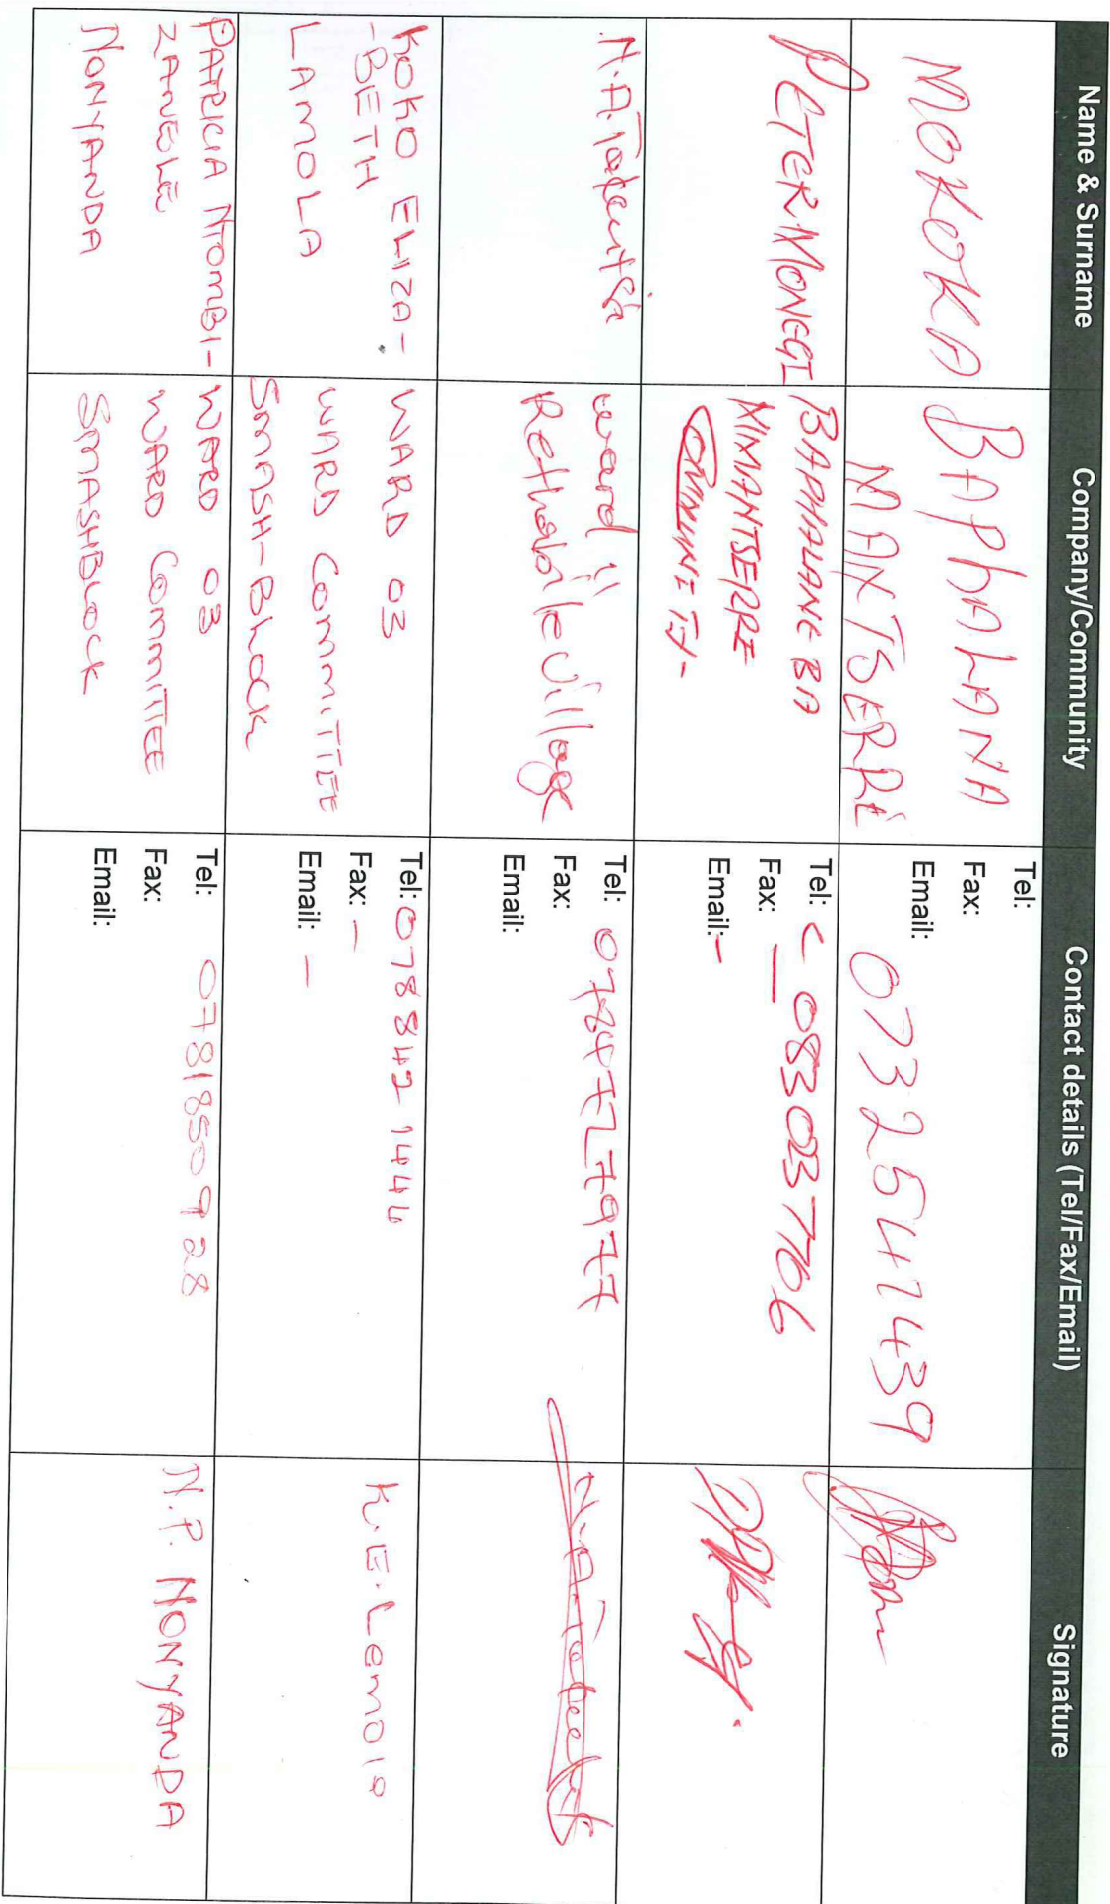 Name & Surname
Company/Community
Contact details (Tel/Fax/Email)
Signature
MOKOKA
BAPhALANA
MANTSERRE
Tel:
Fax:
Email:
PETER MONEGI
BAPHALANE BA
MMANTSERRE
Tel: C 083 023 7706
Fax: —
Email: -
N.A.
ward 11
Rethabile Village
Tel:
Fax:
Email:
KOKO ELIZA-
-BETH
LAMOLA
WARD 03
WARD COMMITTEE
SMASH-BLOCK
Tel: 078 842 1444
Fax: —
Email: —
K.E. Lamola
PATRICIA NTOMBI-
ZANELE
NONYANDA
WARD 03
WARD COMMITTEE
SMASHBLOCK
Tel: 0781850928
Fax:
Email:
N.P. NONYANDA